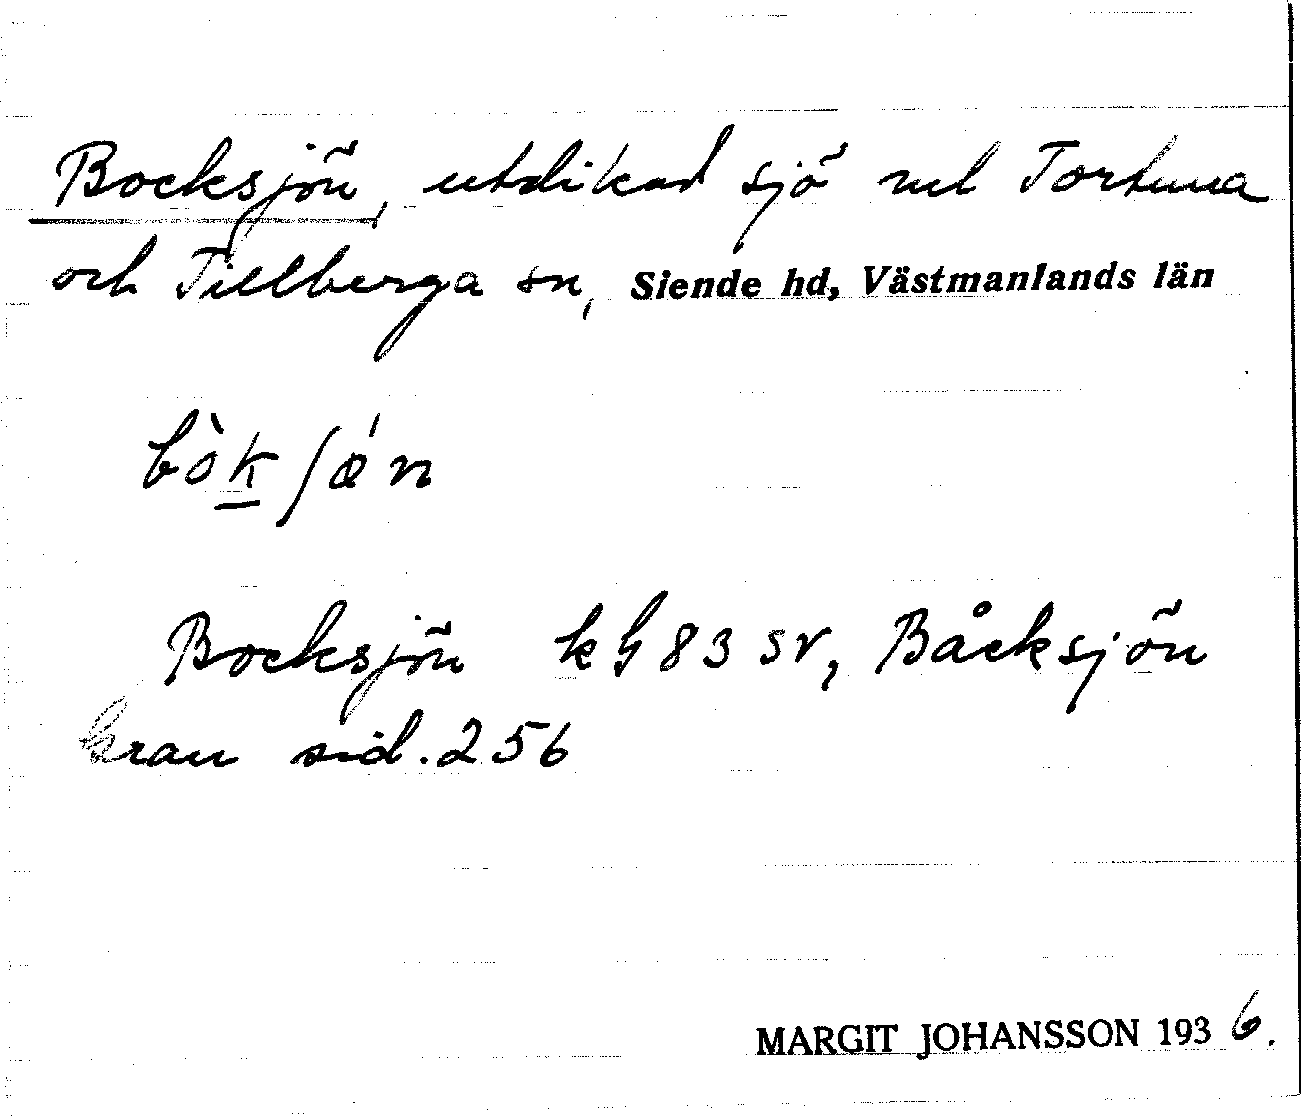 Bocksjön, utdikad sjö mel Tortuna
och Tillberga sn, Siende hd, Västmanlands län
bòk̲ ʃǿn
Bocksjön kG 83 SV, Båcksjön
Gran sid. 256
MARGIT JOHANSSON 1936.